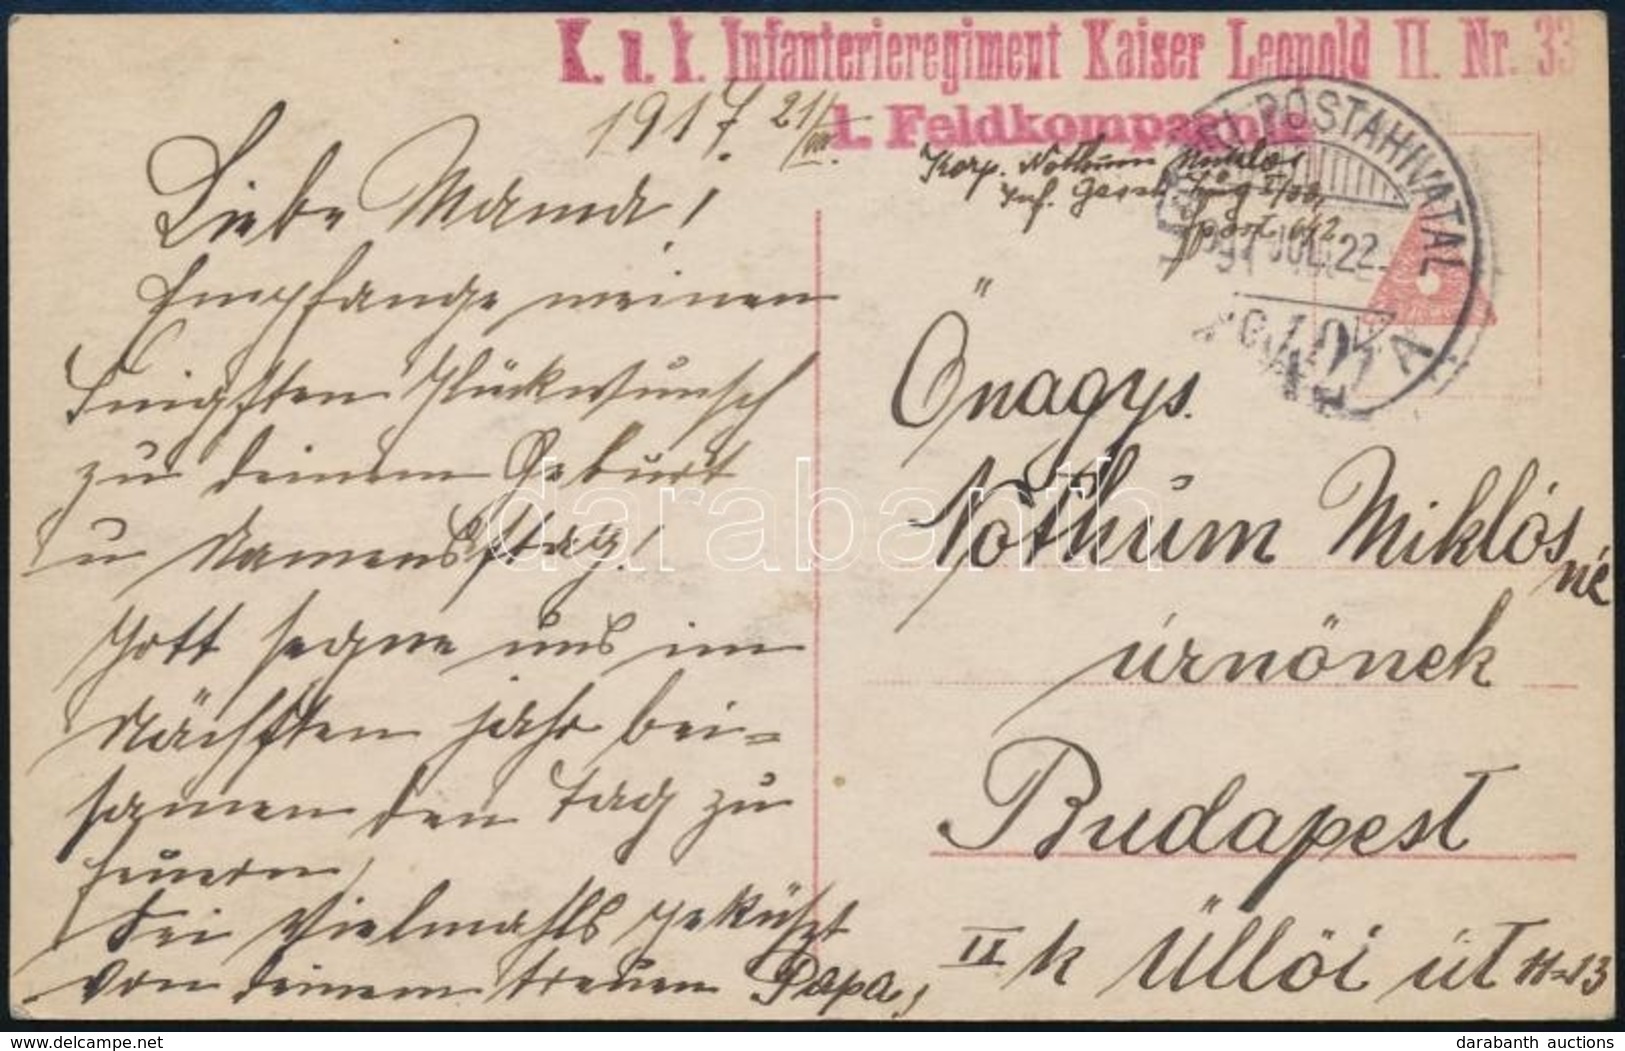 K. u. k. Infanterieregiment Kaiser Leopold II. Nr. 33
1. Feldkompagnie
1917 21/VII.
Korp. Nothum Miklos
post 642
TÁBORI POSTAHIVATAL
917 JUL. 22
Liebe Mama!
Empfange meinen
Innigsten Glückwunsch
zu deinem Geburt
u Namenstag!
Gott segne uns im
Nächsten Jahr bei-
samen den Tag zu
feuern,
Sei Vielmahls geküszt
von deinem treuen Papa,
Önagys.
Nothum Miklós
né
úrnőnek
Budapest
II k Üllői út 11-13
darabanth
hu.delcampe.net
darabanth auctions